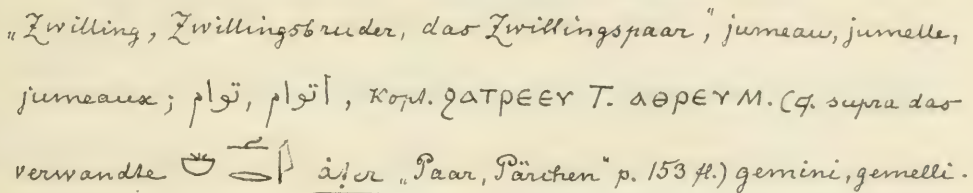 „Zwilling, Zwillingsbruder, das Zwillingspaar“, jumeau, jumelle,
jumeaux; توام, أتوام, Kopt. ϩⲁⲧⲣⲉⲉⲩ T. ⲁⲑⲣⲉⲩ M. (cf. supra das
verwandte „Paar, Pärchen“ p. 153 fl.) gemini, gemelli.